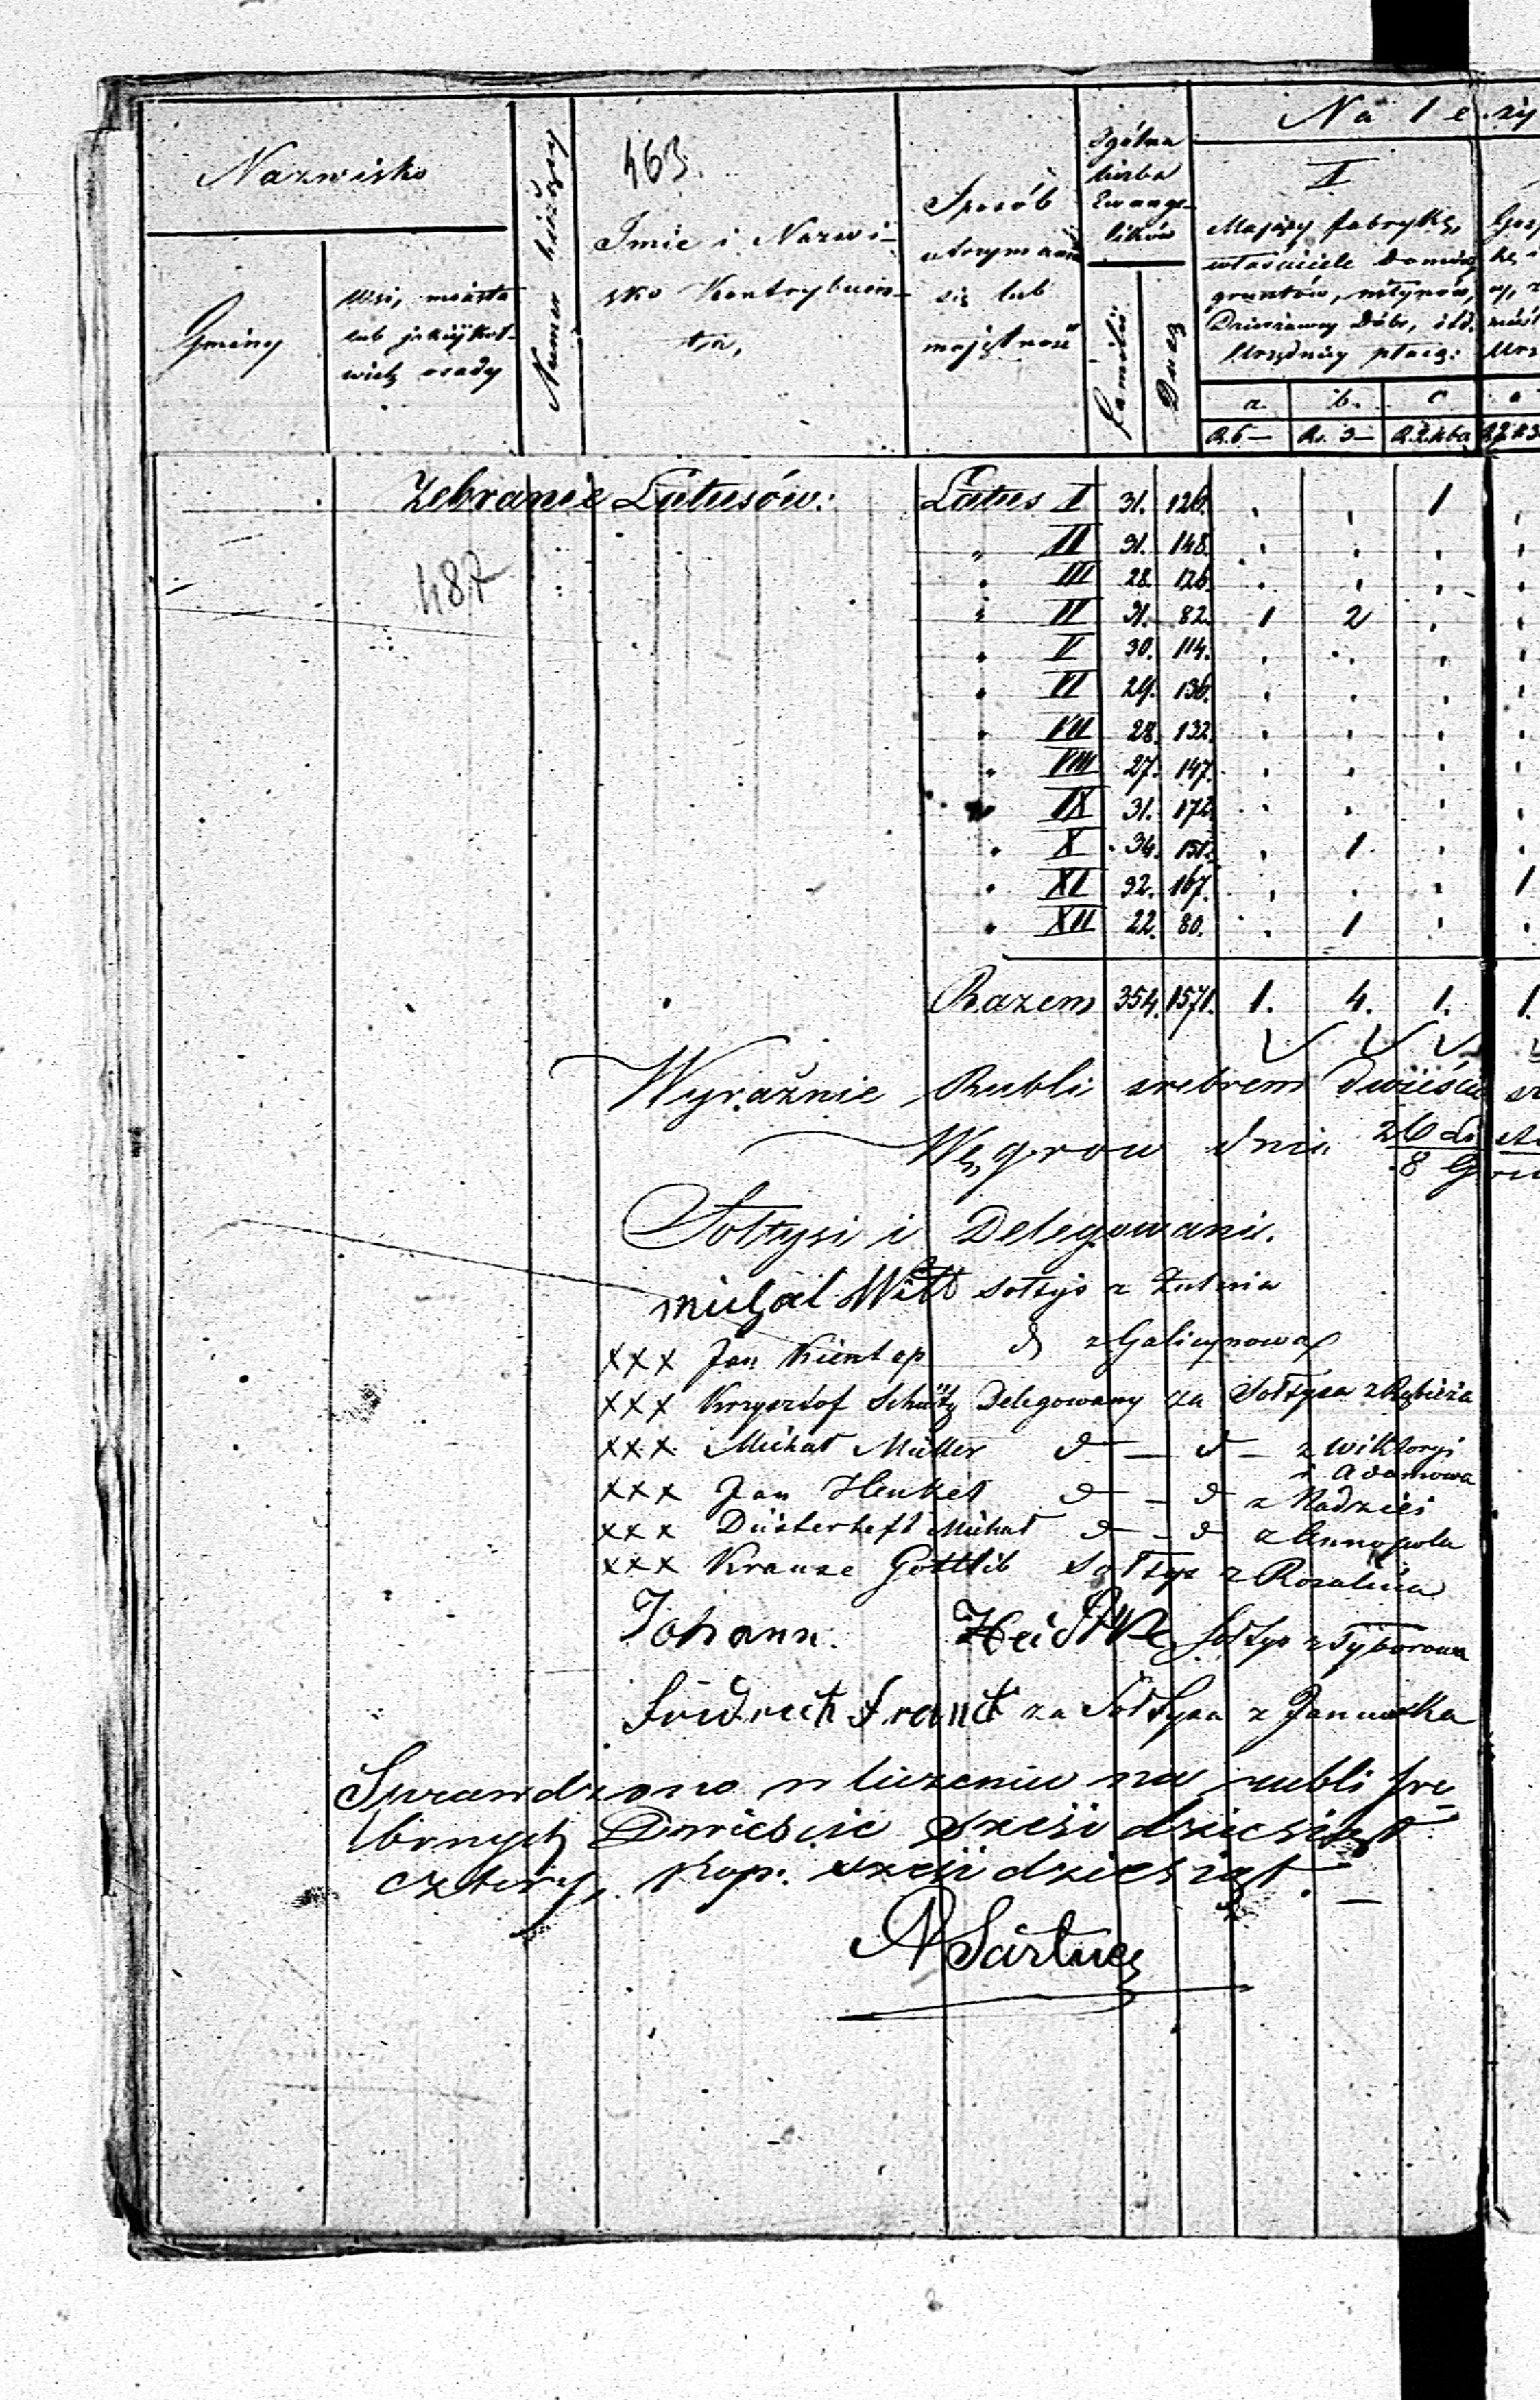 463.
Nazwisko
Gminy
Wsi, miasta
lub jakiejkol-
wiek osady
Numer bieżący
Imie i Nazwi-
sko Kontrybuen-
ta,
Sposób
utrzymania
się lub
majętność
Ogólna
liczba
Ewange-
lików
Familii
Dusz
Należy
I
Mający fabrykę,
właściciele domów,
gruntów, młynów,
Dzierżawcy Dóbr, itd.
Urzędnicy płacą:
a. b. c a
R. 6 — Rs. 3 —
Zebranie Latusów: Latus I 31. 126. , , 1 ,
„ II 31. 148. , , , ,
„ III 28. 126. , , , ,
„ IV 31. 82. 1 2 , ,
„ V 30. 114. , , , ,
„ VI 29. 136. , , , ,
„ VII 28. 132. , , , ,
„ VIII 27. 147. , , , ,
„ IX 31. 172. , , , ,
„ X 34. 151. , 1 , ,
„ XI 32. 167. , , , 1
„ XII 22. 80. , 1 , ,
487
Razem 354. 1571. 1. 4. 1. 1.
Wyraźnie Rubli srebrem Dwieście
Węgrow dnia 26 Li
8 Gru
Sołtysi i Delegowani.
Michael Witt sołtys z
xxx Jan d z Galicynowa
xxx Krzysztof Schütz Delegowany za Sołtysa z
xxx Michał Müller d — d — z Wiktoryi
i Adamowa
xxx Jan Henkel d — d z Nadziei
xxx Düsterheft Michał d — d z Annopola
xxx Krause Gottlib Sołtys z Rozalina
Johann. Heidtke Sołtys z Tyborowa
Fridrich Franck za Sołtysa z Janowka
Sprawdzono w liczeniu na rubli sre-
brnych Dwieście sześćdziesiąt
cztery, kop. sześćdziesiąt. —